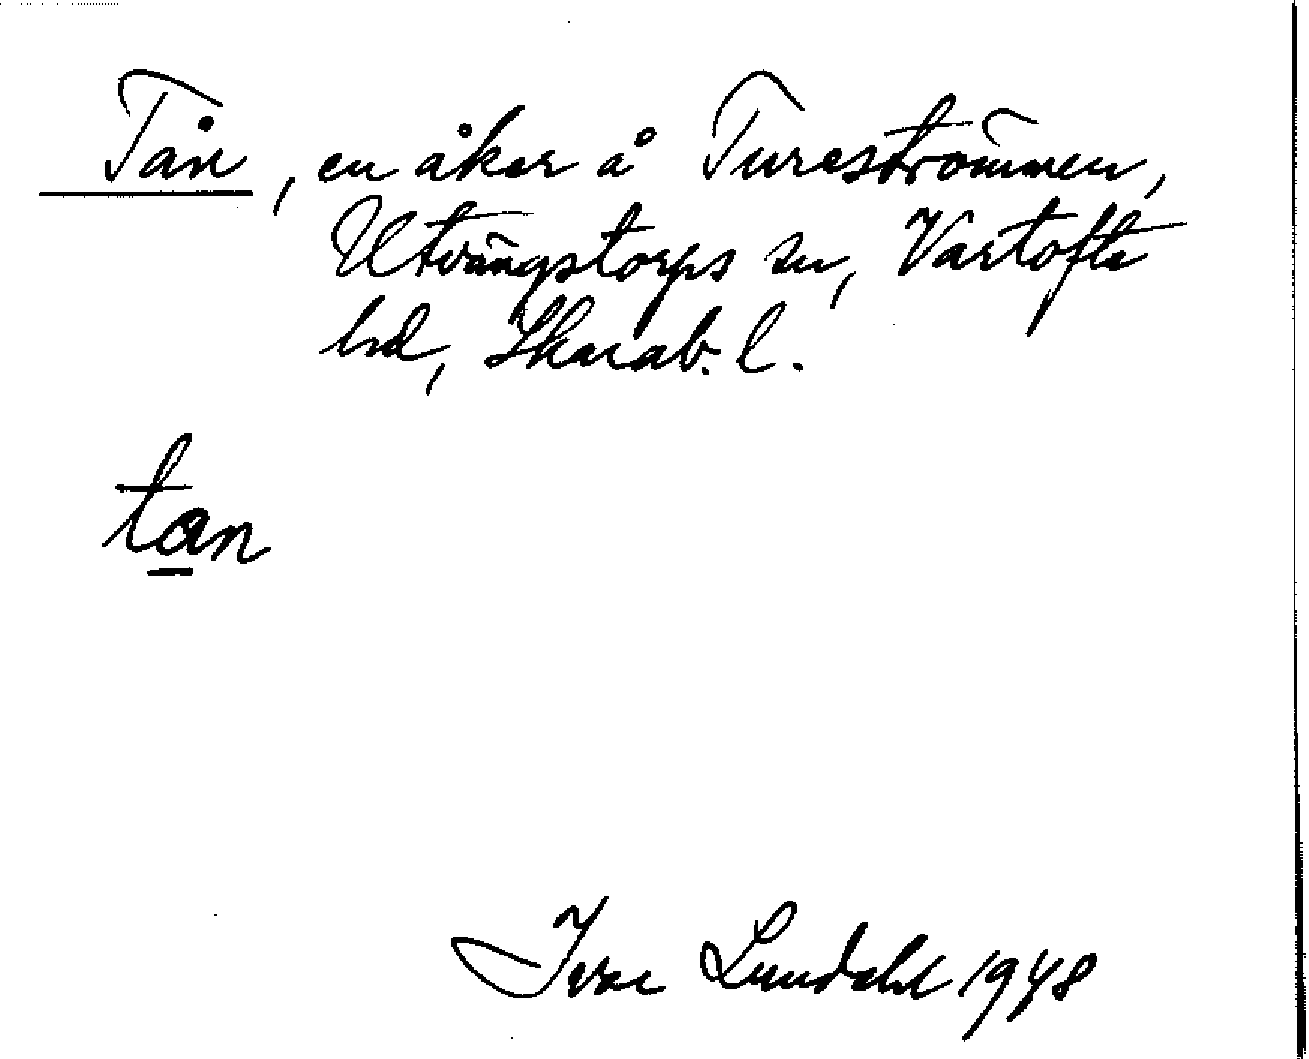 Tån, en åker å Tureströmmen,
Utvängstorps sn, Vartofta
hd, Skarab. l.
tan
Ivar Lundahl 1948